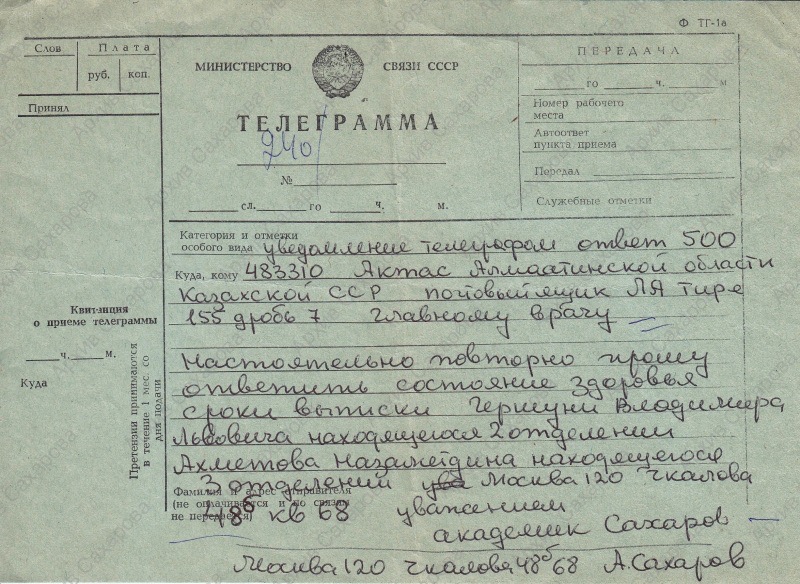 Ф ТГ-1а
Слов
Плата
руб.
коп.
Принял
МИНИСТЕРСТВО СВЯЗИ СССР
ТЕЛЕГРАММА
240/
№
сл. го ч. м.
ПЕРЕДАЧА
го ч. м
Номер рабочего
места
Автоответ
пункта приема
Передал
Служебные отметки
Категория и отметки
особого вида уведомление телеграфом ответ 500
Куда, кому 483310 Актас Алмаатинской области
Казахской ССР почтовый ящик ЛА тире
155 дробь 7 главному врачу
Квитанция
о приеме телеграммы
ч. м.
Куда
Претензии принимаются
в течение 1 мес. со
дня подачи
Настоятельно повторно прошу
ответить состояние здоровья
сроки выписки Гершуни Владимира
Львовича находящегося 2 отделении
Ахметова Назаметдина находящегося
3 отделении Москва 120 Чкалова
Фамилия и адрес отправителя
(не оплачивается и по связи
не передается)
48б кв 68 уважением
академик Сахаров
Москва 120 Чкалова 48б 68 А.Сахаров
Архив Сахарова